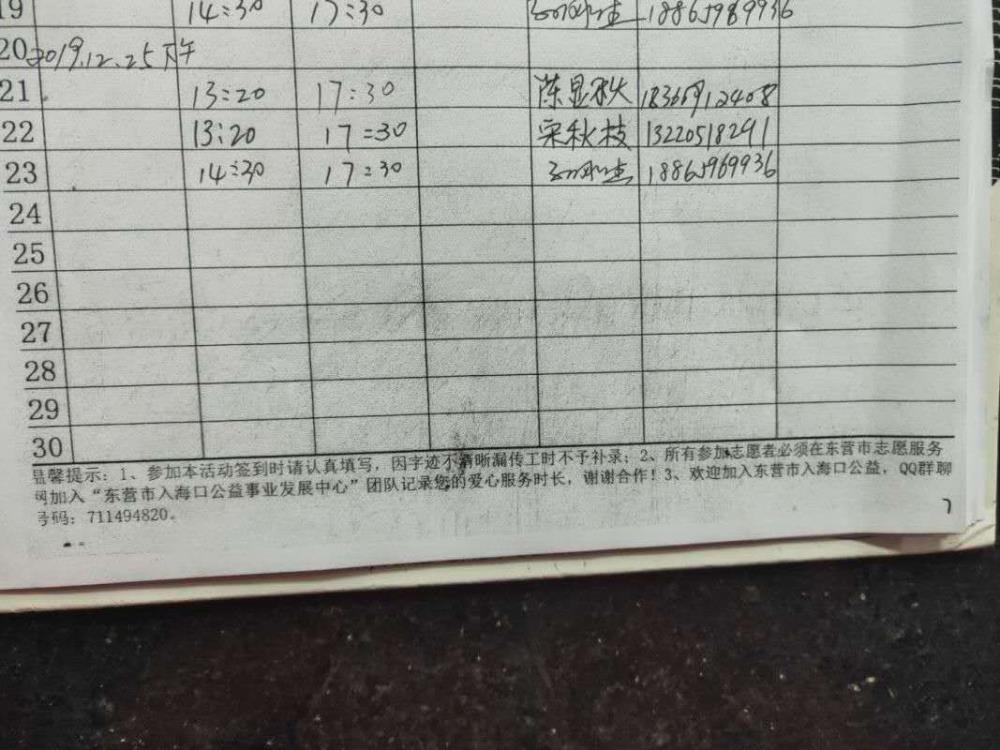 19 14:30 17:30 18865989936
20 2019.12.25下午
21 13:20 17:30 陈显秋 18366912408
22 13:20 17:30 宋秋枝 13220518291
23 14:30 17:30 18865969936
24
25
26
27
28
29
30
温馨提示：1、参加本活动签到时请认真填写，因字迹不清晰漏传工时不予补录；2、所有参加志愿者必须在东营市志愿服务
网加入“东营市入海口公益事业发展中心”团队记录您的爱心服务时长，谢谢合作！3、欢迎加入东营市入海口公益，QQ群聊
号码：711494820。
7